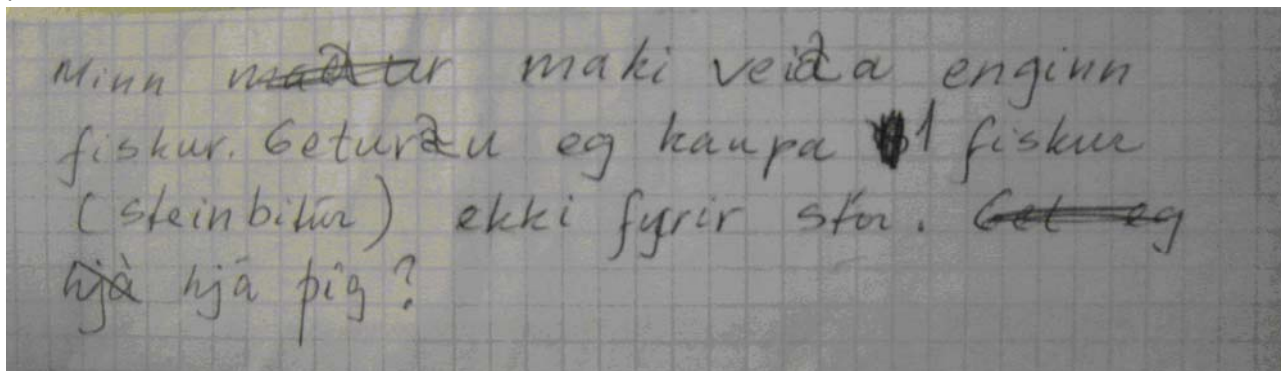 Minn maður maki veiða enginn
fiskur. Geturðu eg kaupa 1 fiskur
(steinbitur) ekki fyrir stór. Get eg
hjà hjá þig?